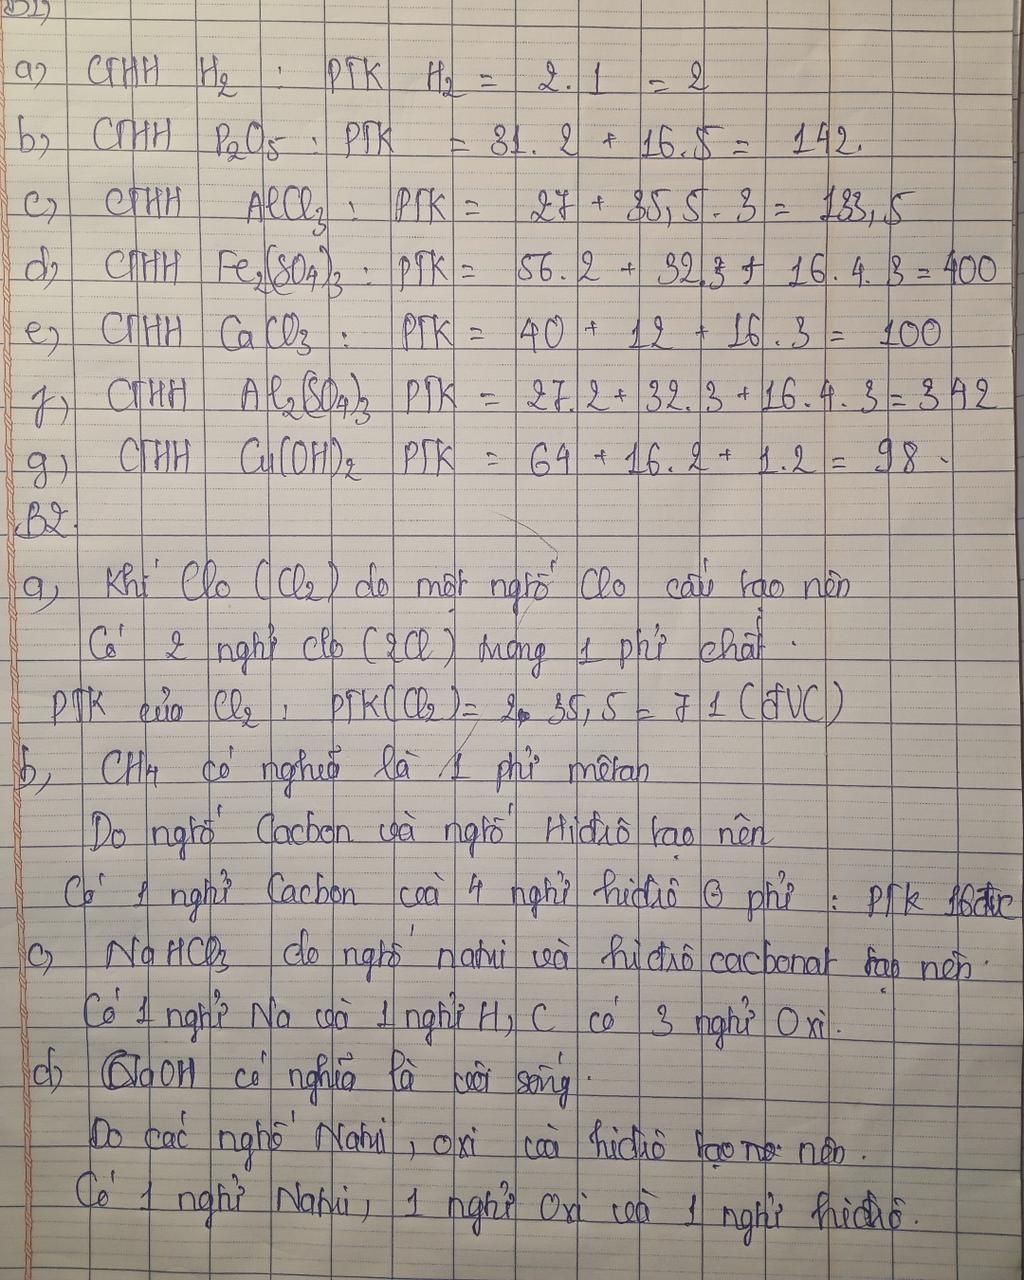 B1)
a) CTHH H₂ : PTK H₂ = 2.1 = 2
b) CTHH P₂O₅ : PTK = 31.2 + 16.5 = 142.
c) CTHH AlCl₃ : PTK = 27 + 35,5.3 = 133,5
d) CTHH Fe₂(SO₄)₃ : PTK = 56.2 + 32.3 + 16.4.3 = 400
e) CTHH CaCO₃ : PTK = 40 + 12 + 16.3 = 100
f) CTHH Al₂(SO₄)₃ PTK = 27.2 + 32.3 + 16.4.3 = 342
g) CTHH Cu(OH)₂ PTK = 64 + 16.2 + 1.2 = 98.
B2.
a) Khí Clo (Cl₂) do một ngtố Clo cấu tạo nên
Có 2 nghtử clo (2Cl) trong 1 phtử chất.
PTK của Cl₂ : PTK(Cl₂) = 2.35,5 = 71 (đVC)
b, CH₄ có nghĩa là 1 phtử mêtan
Do ngtố Cacbon và ngtố Hiđrô tạo nên
Có 1 nghtử Cacbon và 4 nghtử hiđrô phtử : PTK 16đvc
c) NaHCO₃ do nghtố natri và hiđrô cacbonat tạo nên.
Có 1 nghtử Na và 1 nghtử H, C có 3 nghtử Oxi.
d) NaOH có nghĩa là vôi sống.
Do các nghtố Natri, oxi và hiđrô tạo nên.
Có 1 nghtử Natri, 1 nghtử Oxi và 1 nghtử hiđrô.